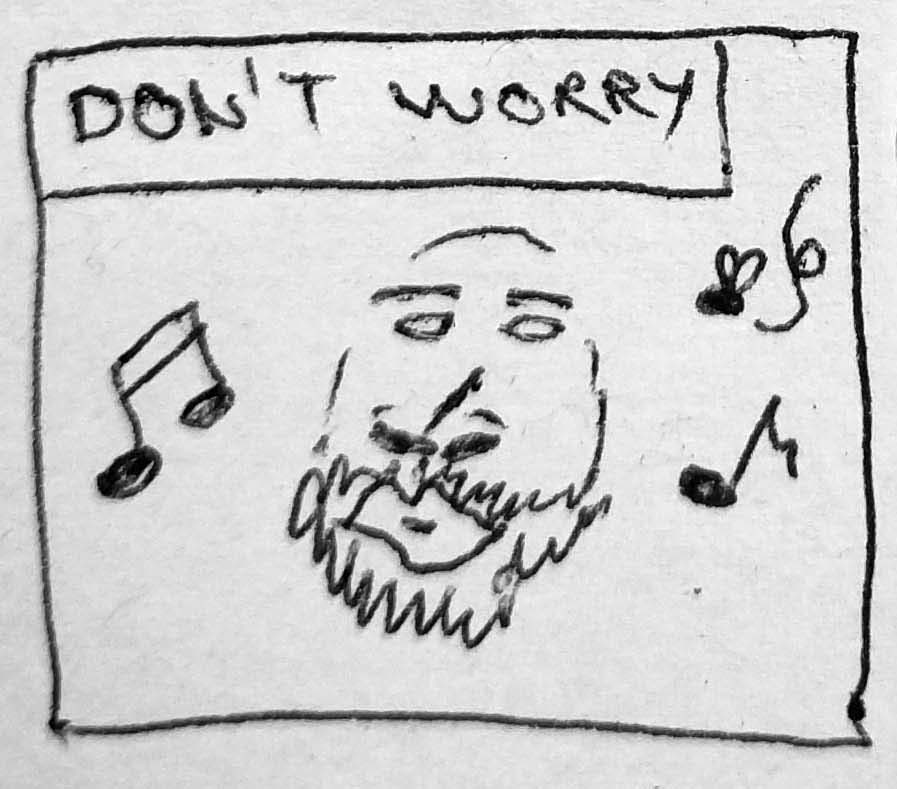 DON'T WORRY